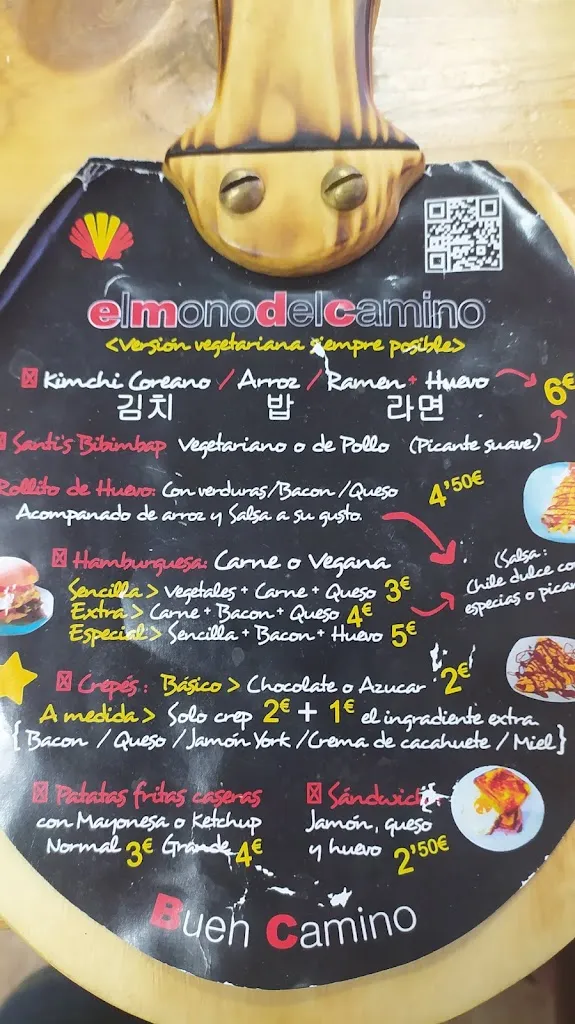 elmonodelcamino
<Versión vegetariana siempre posible>
Kimchi Coreano / Arroz / Ramen + Huevo 6€
김치 밥 라면
Santi's Bibimbap Vegetariano o de Pollo (Picante suave)
Rollito de Huevo: Con verduras/Bacon/Queso 4'50€
Acompanado de arroz y Salsa a su gusto.
Hamburguesa: Carne o Vegana
Sencilla > Vegetales + Carne + Queso 3€
Extra > Carne + Bacon + Queso 4€
Especial > Sencilla + Bacon + Huevo 5€
(Salsa:
Chile dulce con
especias o
Crepés: Básico > Chocolate o Azucar 2€
A medida > Solo crep 2€ + 1€ el ingrediente extra
{Bacon / Queso / Jamón York / Crema de cacahuete / Miel}
Patatas fritas caseras
con Mayonesa o Ketchup
Normal 3€ Grande 4€
Sándwich:
Jamón, queso
y huevo 2'50€
Buen Camino